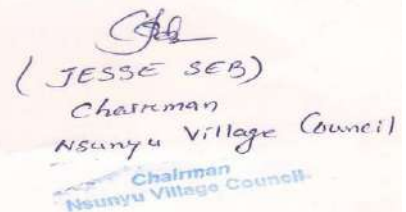 ( JESSE SEB)
Chairman
Nsunyu Village Council
Chairman
Nsunyu Village Council